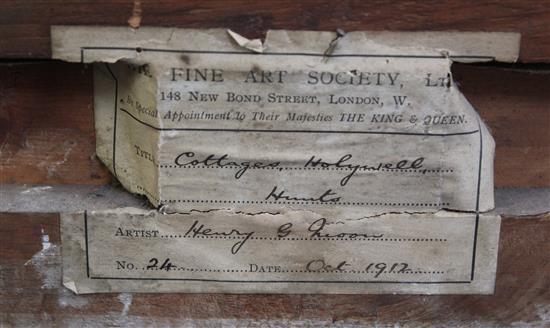 FINE ART SOCIETY, LTD.
148 NEW BOND STREET, LONDON, W.
By Special Appointment to Their Majesties THE KING & QUEEN.
TITLE Cottages, Holywell,
Hunts
ARTIST Henry G Moon
No. 24 DATE Oct 1912